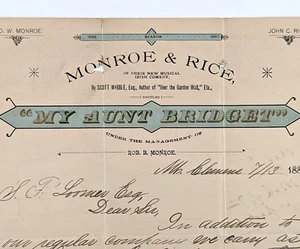 O. W. MONROE.
JOHN C. RI
SEASON
MONROE & RICE,
IN THEIR NEW MUSICAL
IRISH COMEDY,
By SCOTT MARBLE, Esq., Author of "Over the Garden Wall," Etc.,
ENTITLED
"MY AUNT BRIDGET"
UNDER THE MANAGEMENT OF
ROB. B. MONROE.
Mt. Clemens 7/13 188
S. T. Loomer Esq
Dear Sir,
In addition to
our regular company we carry as